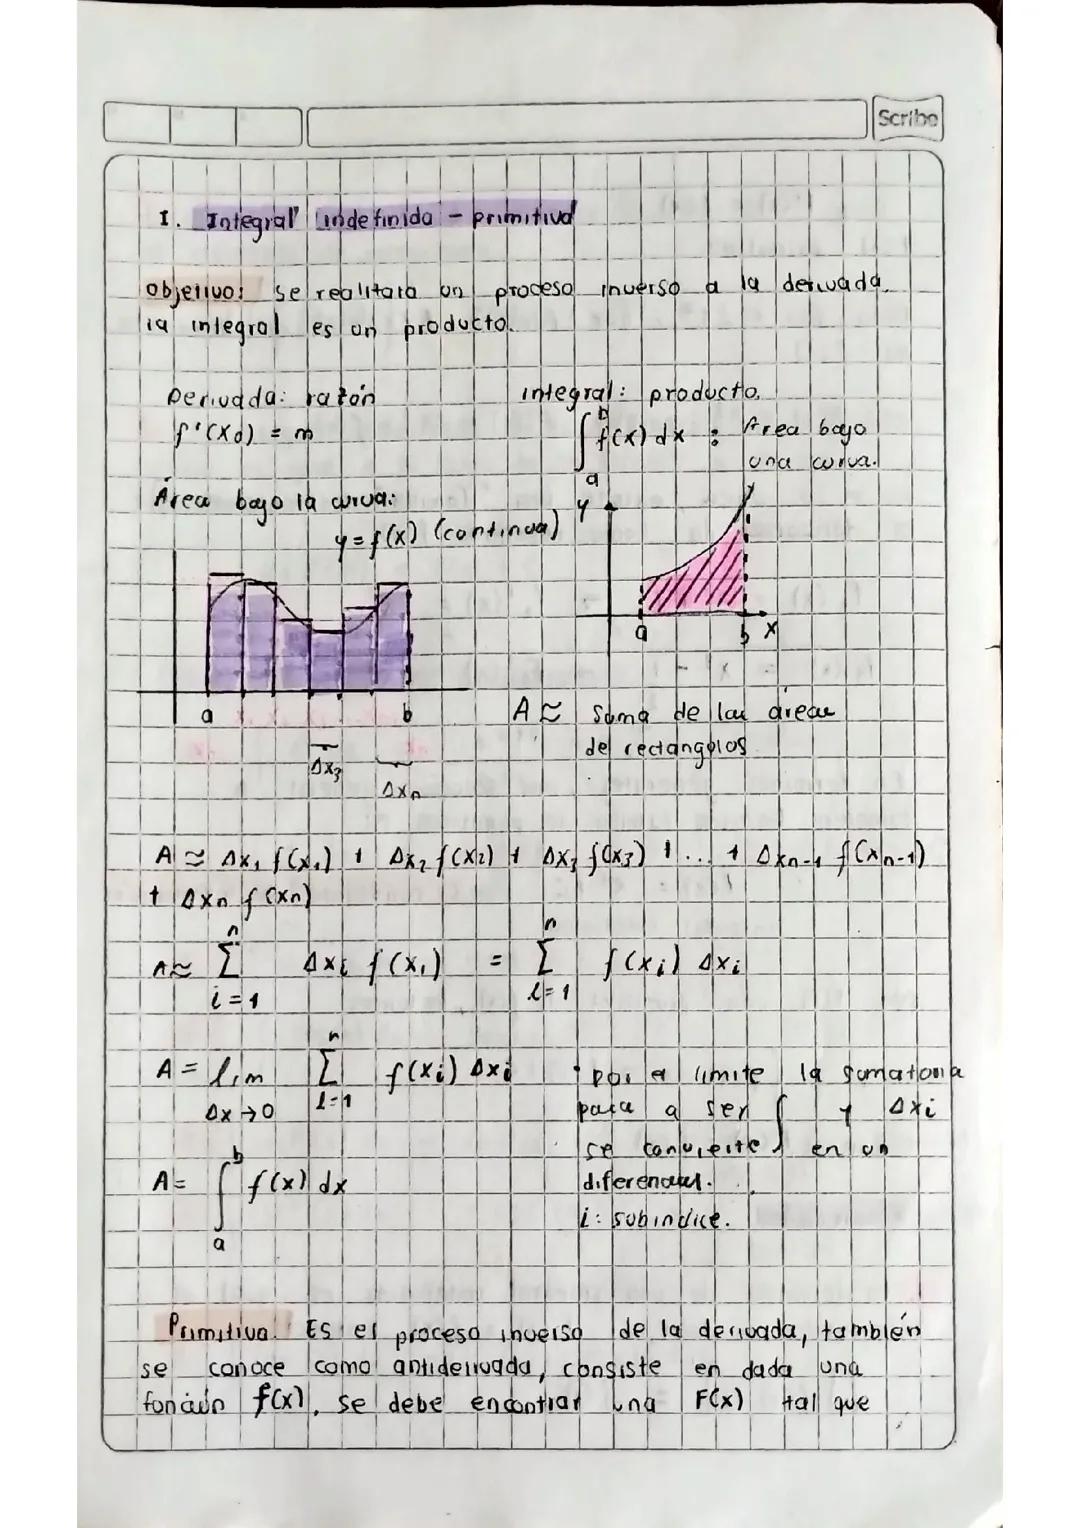 Scribe
I. Integral indefinida - primitiva
Objetivo: se realizara un proceso inverso a la derivada.
la integral es un producto.
Derivada: razón
integral: producto.
f'(x0) = m
∫ₐᵇ f(x) dx : Area bajo
una curva.
Área bajo la curva:
y = f(x) (continua)
y
a b x
a b
Δx₃
Δxn
A ≈ Suma de las áreas
de rectangulos
A ≈ Δx₁ f(x₁) + Δx₂ f(x₂) + Δx₃ f(x₃) + ... + Δxn-1 f(xn-1)
+ Δxn f(xn)
A ≈ ∑ⁿ i=1 Δxi f(xi) = ∑ⁿ i=1 f(xi) Δxi
A = lim Δx→0 ∑ⁿ i=1 f(xi) Δxi
Por el limite la sumatoria
pasa a ser ∫ y Δxi
se convierte en un
diferencial.
i: subindice.
A = ∫ₐᵇ f(x) dx
Primitiva: Es el proceso inverso de la derivada, también
se conoce como antiderivada, consiste en dada una
función f(x), se debe encontrar una F(x) tal que